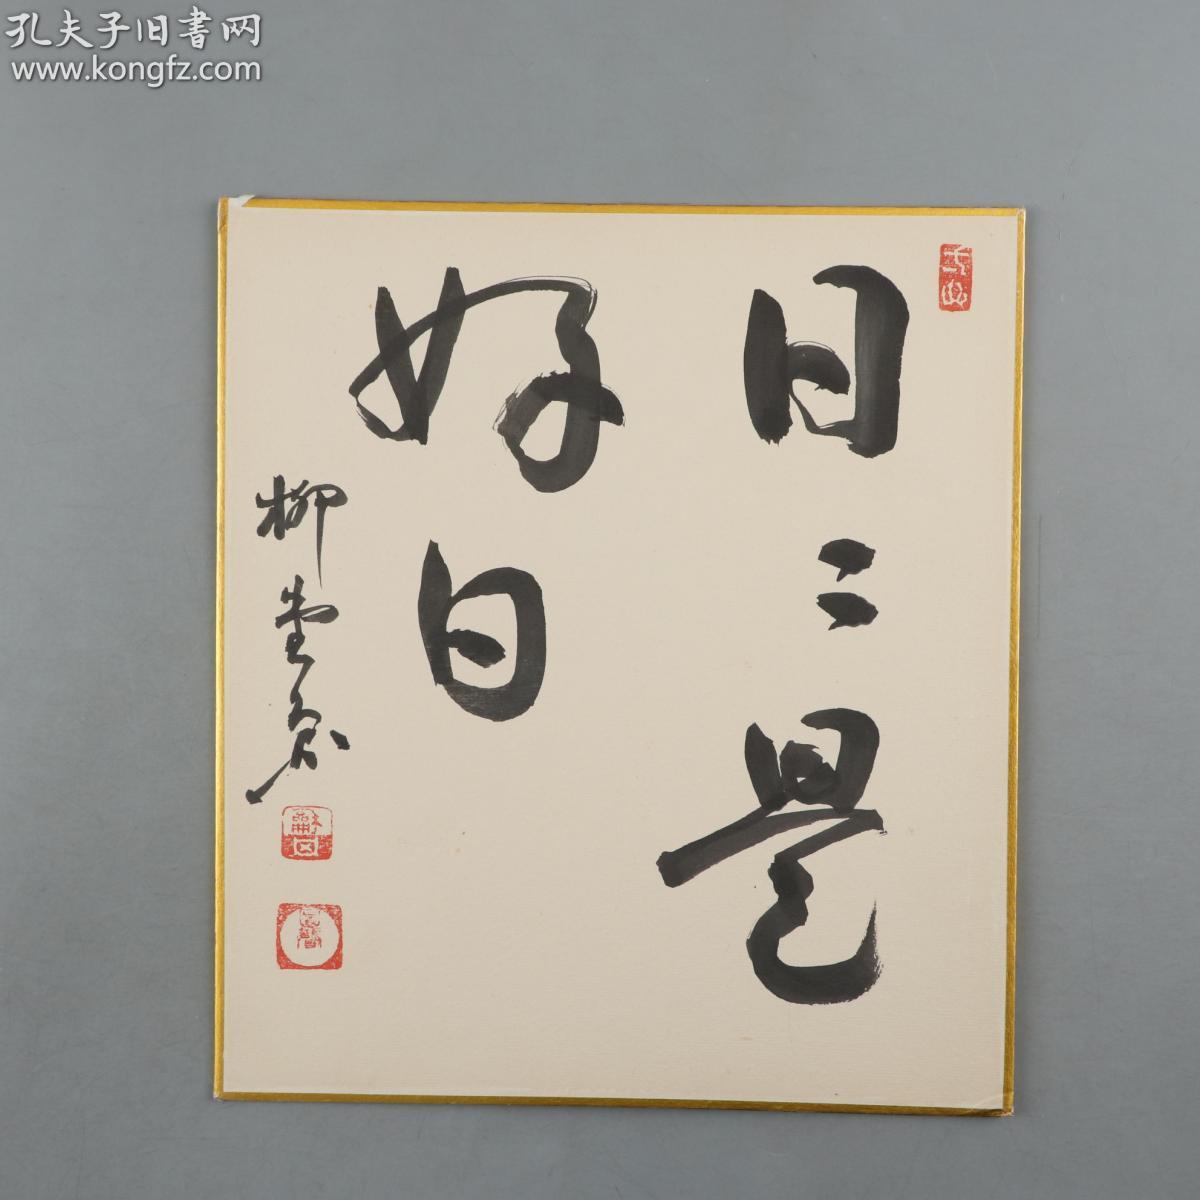 孔夫子旧書网
www.kongfz.com
日〻是
好日
柳堂